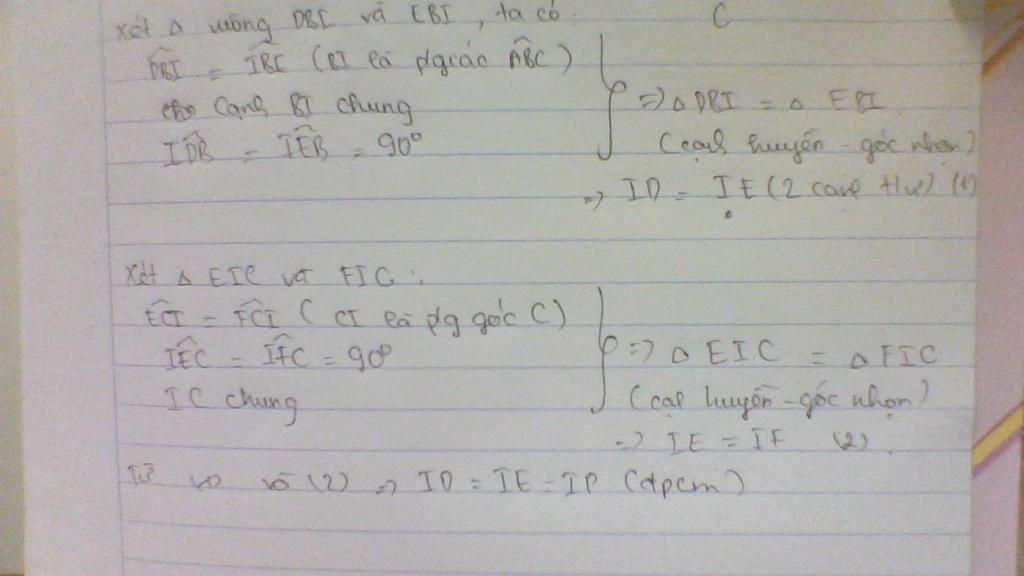 C
Xét Δ vuông DBI và EBI, ta có:
D̂BI = ÎBE (BI là p/giác ÂBC)
Cạnh BI chung
ID̂B = IÊB = 90°
=> Δ DBI = Δ EBI
(cạnh huyền - góc nhọn)
=> ID = IE (2 cạnh t/ư) (1)
Xét Δ EIC và FIC:
ÊCI = F̂CI (CI là p/g góc C)
IÊC = IF̂C = 90°
IC chung
=> Δ EIC = Δ FIC
(cạh huyền - góc nhọn)
=> IE = IF (2).
Từ và (2) => ID = IE = IF (đpcm)